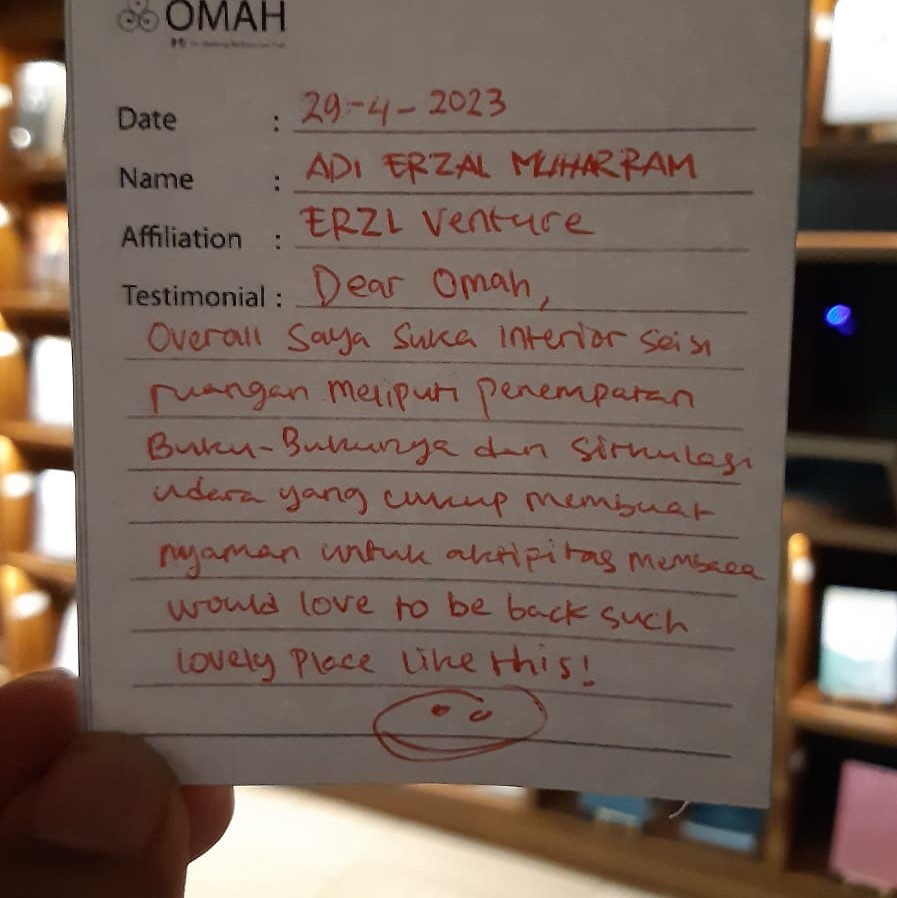 OMAH
Date : 29-4-2023
Name : ADI ERZAL MUHARRAM
Affiliation : ERZL Venture
Testimonial : Dear Omah,
Overall Saya Suka interior seisi
ruangan meliputi penempatan
Buku-Bukunya dan Sirkulasi
udara yang cukup membuat
nyaman untuk aktipitas membaca
would love to be back such
lovely Place like this!